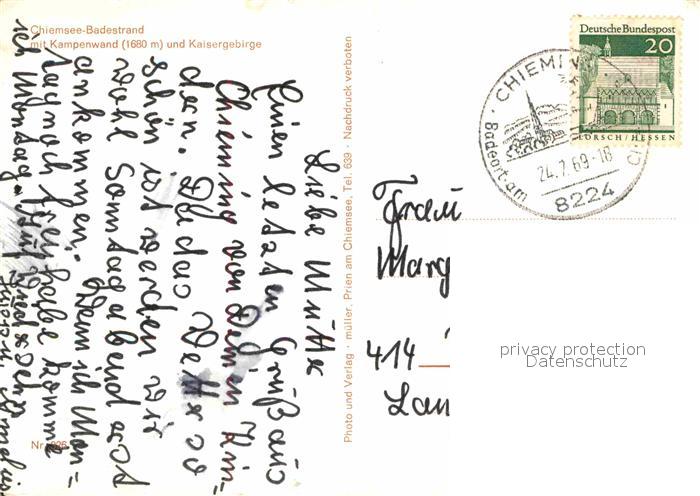 Chiemsee-Badestrand
mit Kampenwand (1680 m) und Kaisergebirge
Liebe Mutter
Einen letzten Gruß aus
Chieming von Deinen Kin=
dern. Da das Wetter so
schön ist werden wir
wohl Sonntag abend erst
ankommen. Wenn ich Mon=
tag noch frei habe komme
ich Montag
Photo und Verlag · müller, Prien am Chiemsee, Tel. 639 · Nachdruck verboten
Deutsche Bundespost
20
LORSCH / HESSEN
CHIEMING
Badeort am
24.7.69-18
8224
Frau
Marg
414
Lan
privacy protection
Datenschutz